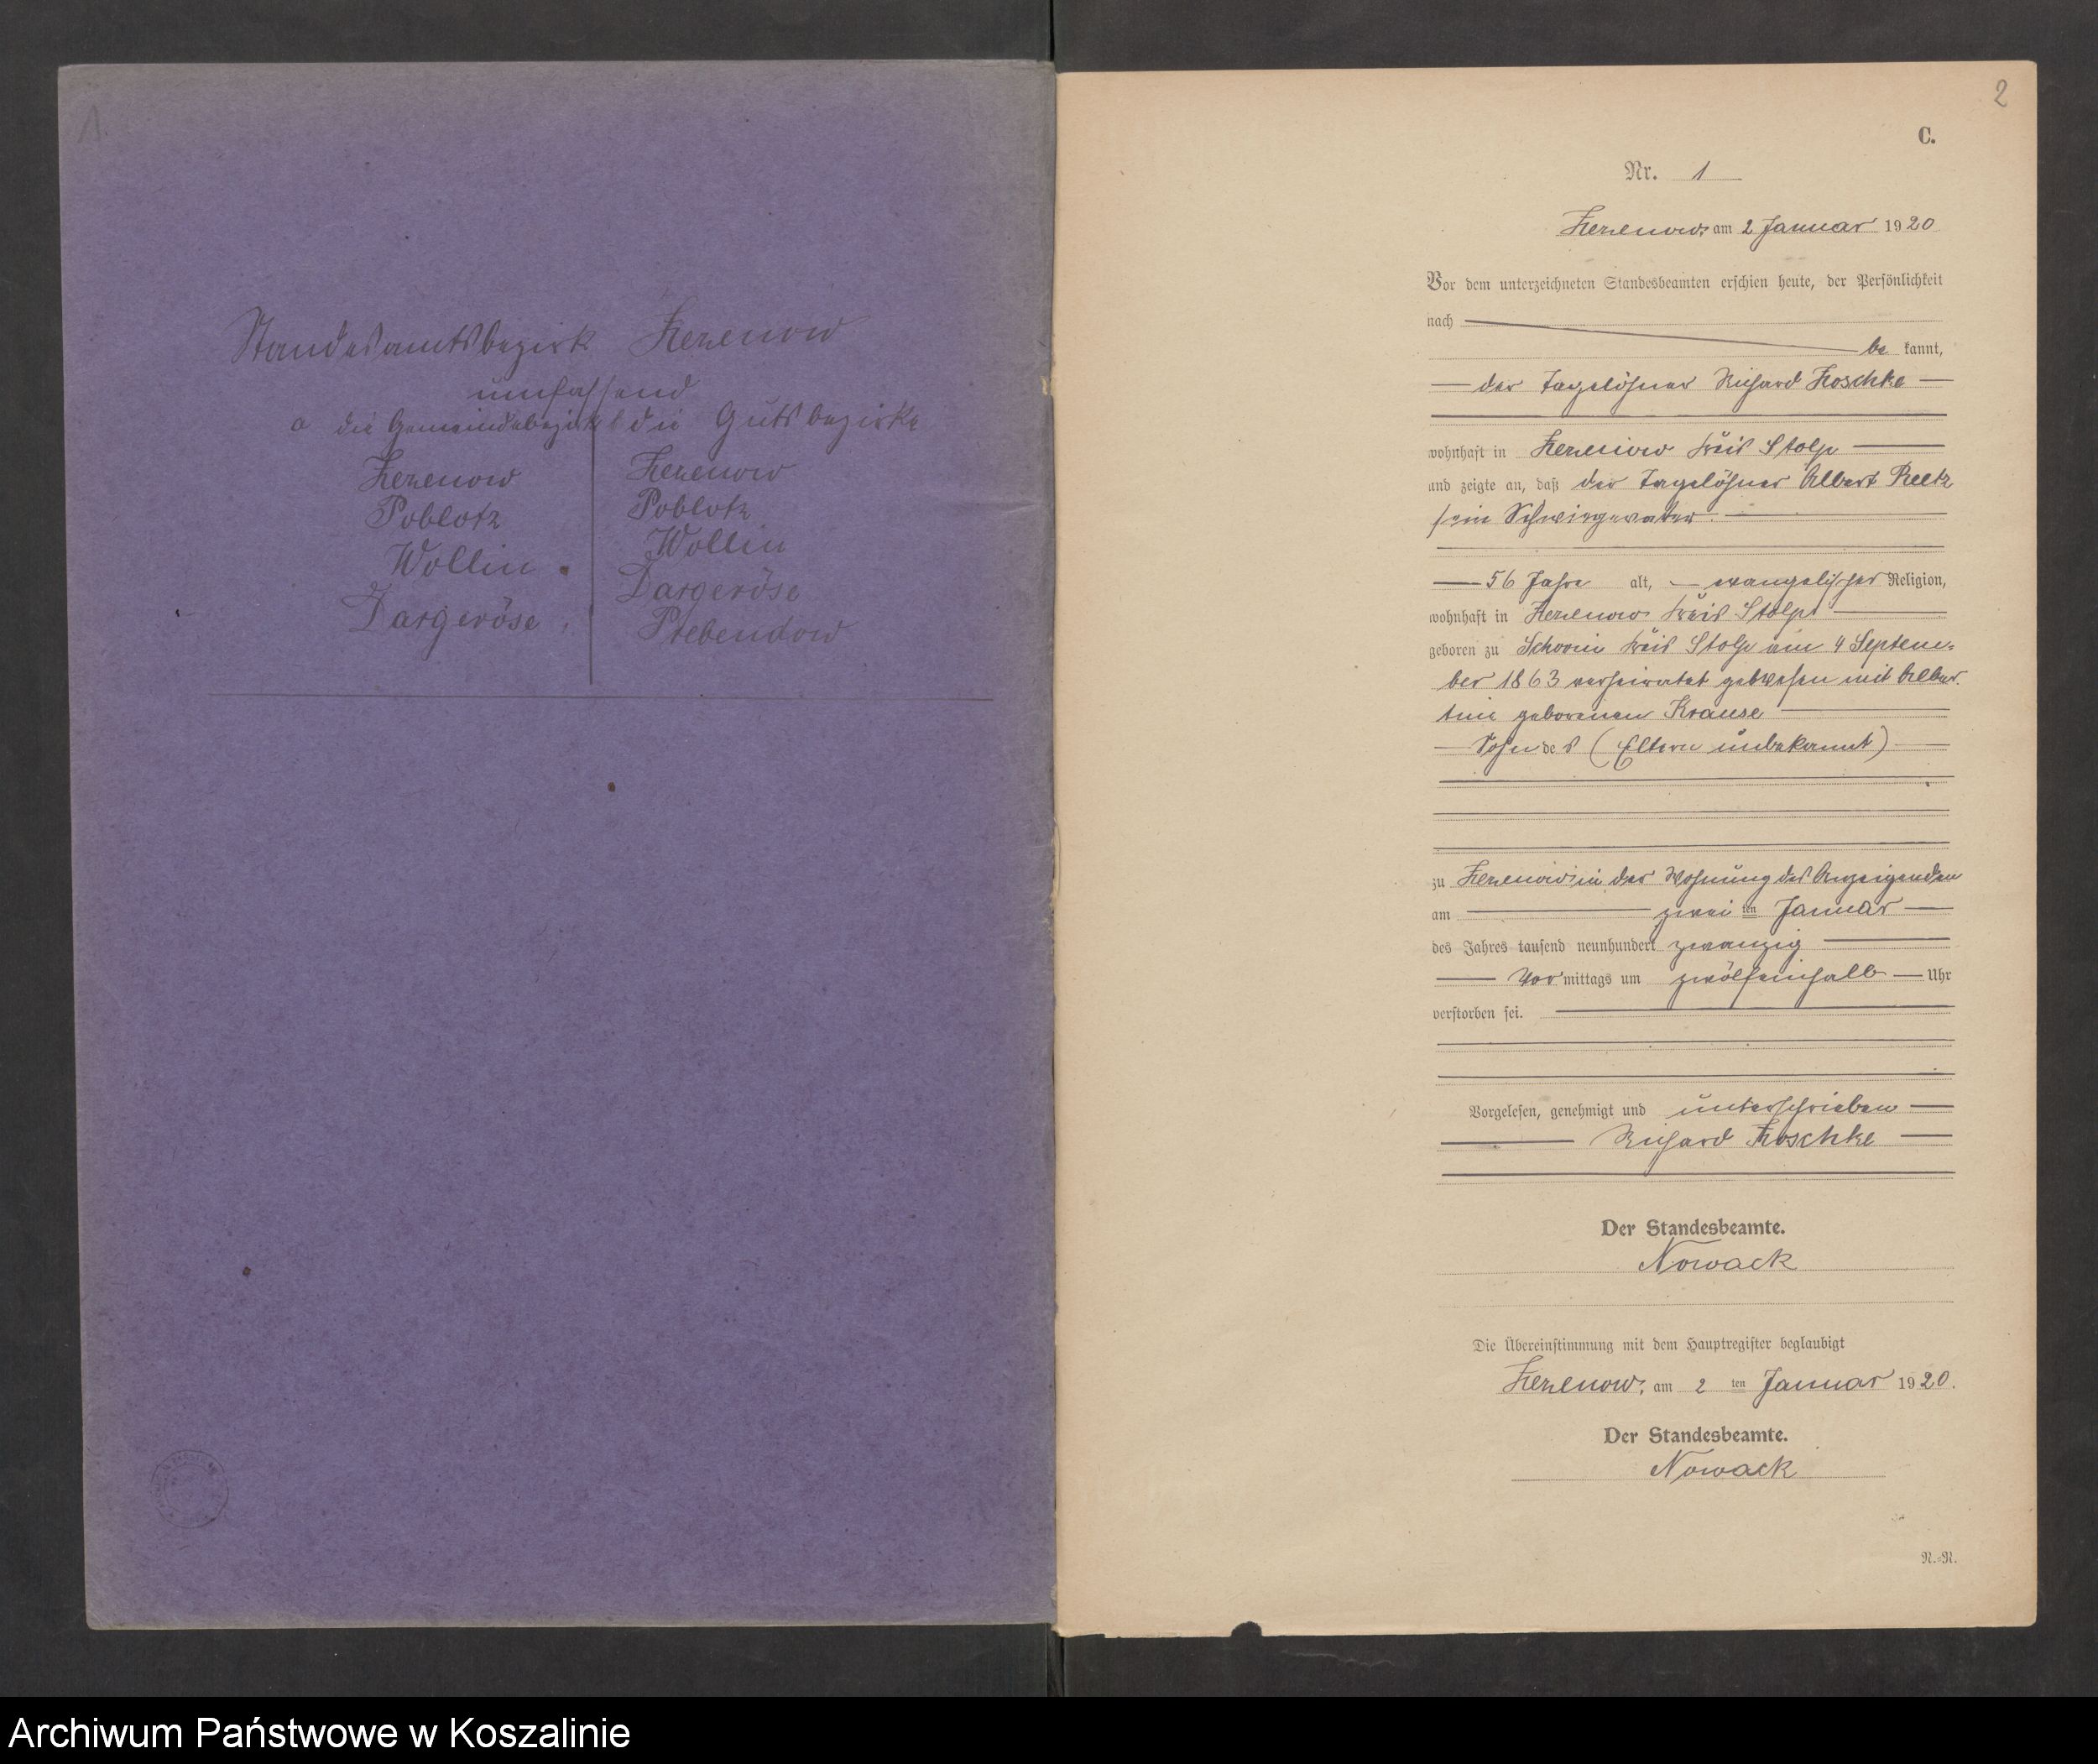 1.
Standesamtsbezirk Zezenow
umfassend
a die Gemeindebezirke die Gutsbezirke
Zezenow Zezenow
Poblotz Poblotz
Wollin Wollin
Dargeröse Dargeröse
Prebendow
2
C.
Nr. 1
Zezenow am 2 Januar 1920
Vor dem unterzeichneten Standesbeamten erschien heute, der Persönlichkeit
nach
be kannt,
der Tagelöhner Richard Koschke
wohnhaft in Zezenow Kreis Stolp
und zeigte an, daß der Tagelöhner Albert Reetz
sein Schwiegervater
56 Jahre alt, evangelischer Religion,
wohnhaft in Zezenow Kreis Stolp
geboren zu Kreis Stolp am 4 Septem-
ber 1863 verheiratet gewesen mit Alber-
tine geborenen Krause
Sohn des (Eltern unbekannt)
zu Zezenow in der Wohnung des Anzeigenden
am zwei ten Januar
des Jahres tausend neunhundert zwanzig
Vor mittags um zwölfeinhalb Uhr
verstorben sei.
Vorgelesen, genehmigt und unterschrieben
Richard Koschke
Der Standesbeamte.
Nowack
Die Übereinstimmung mit dem Hauptregister beglaubigt
Zezenow, am 2 ten Januar 1920.
Der Standesbeamte.
Nowack
N.-N.
Archiwum Państwowe w Koszalinie